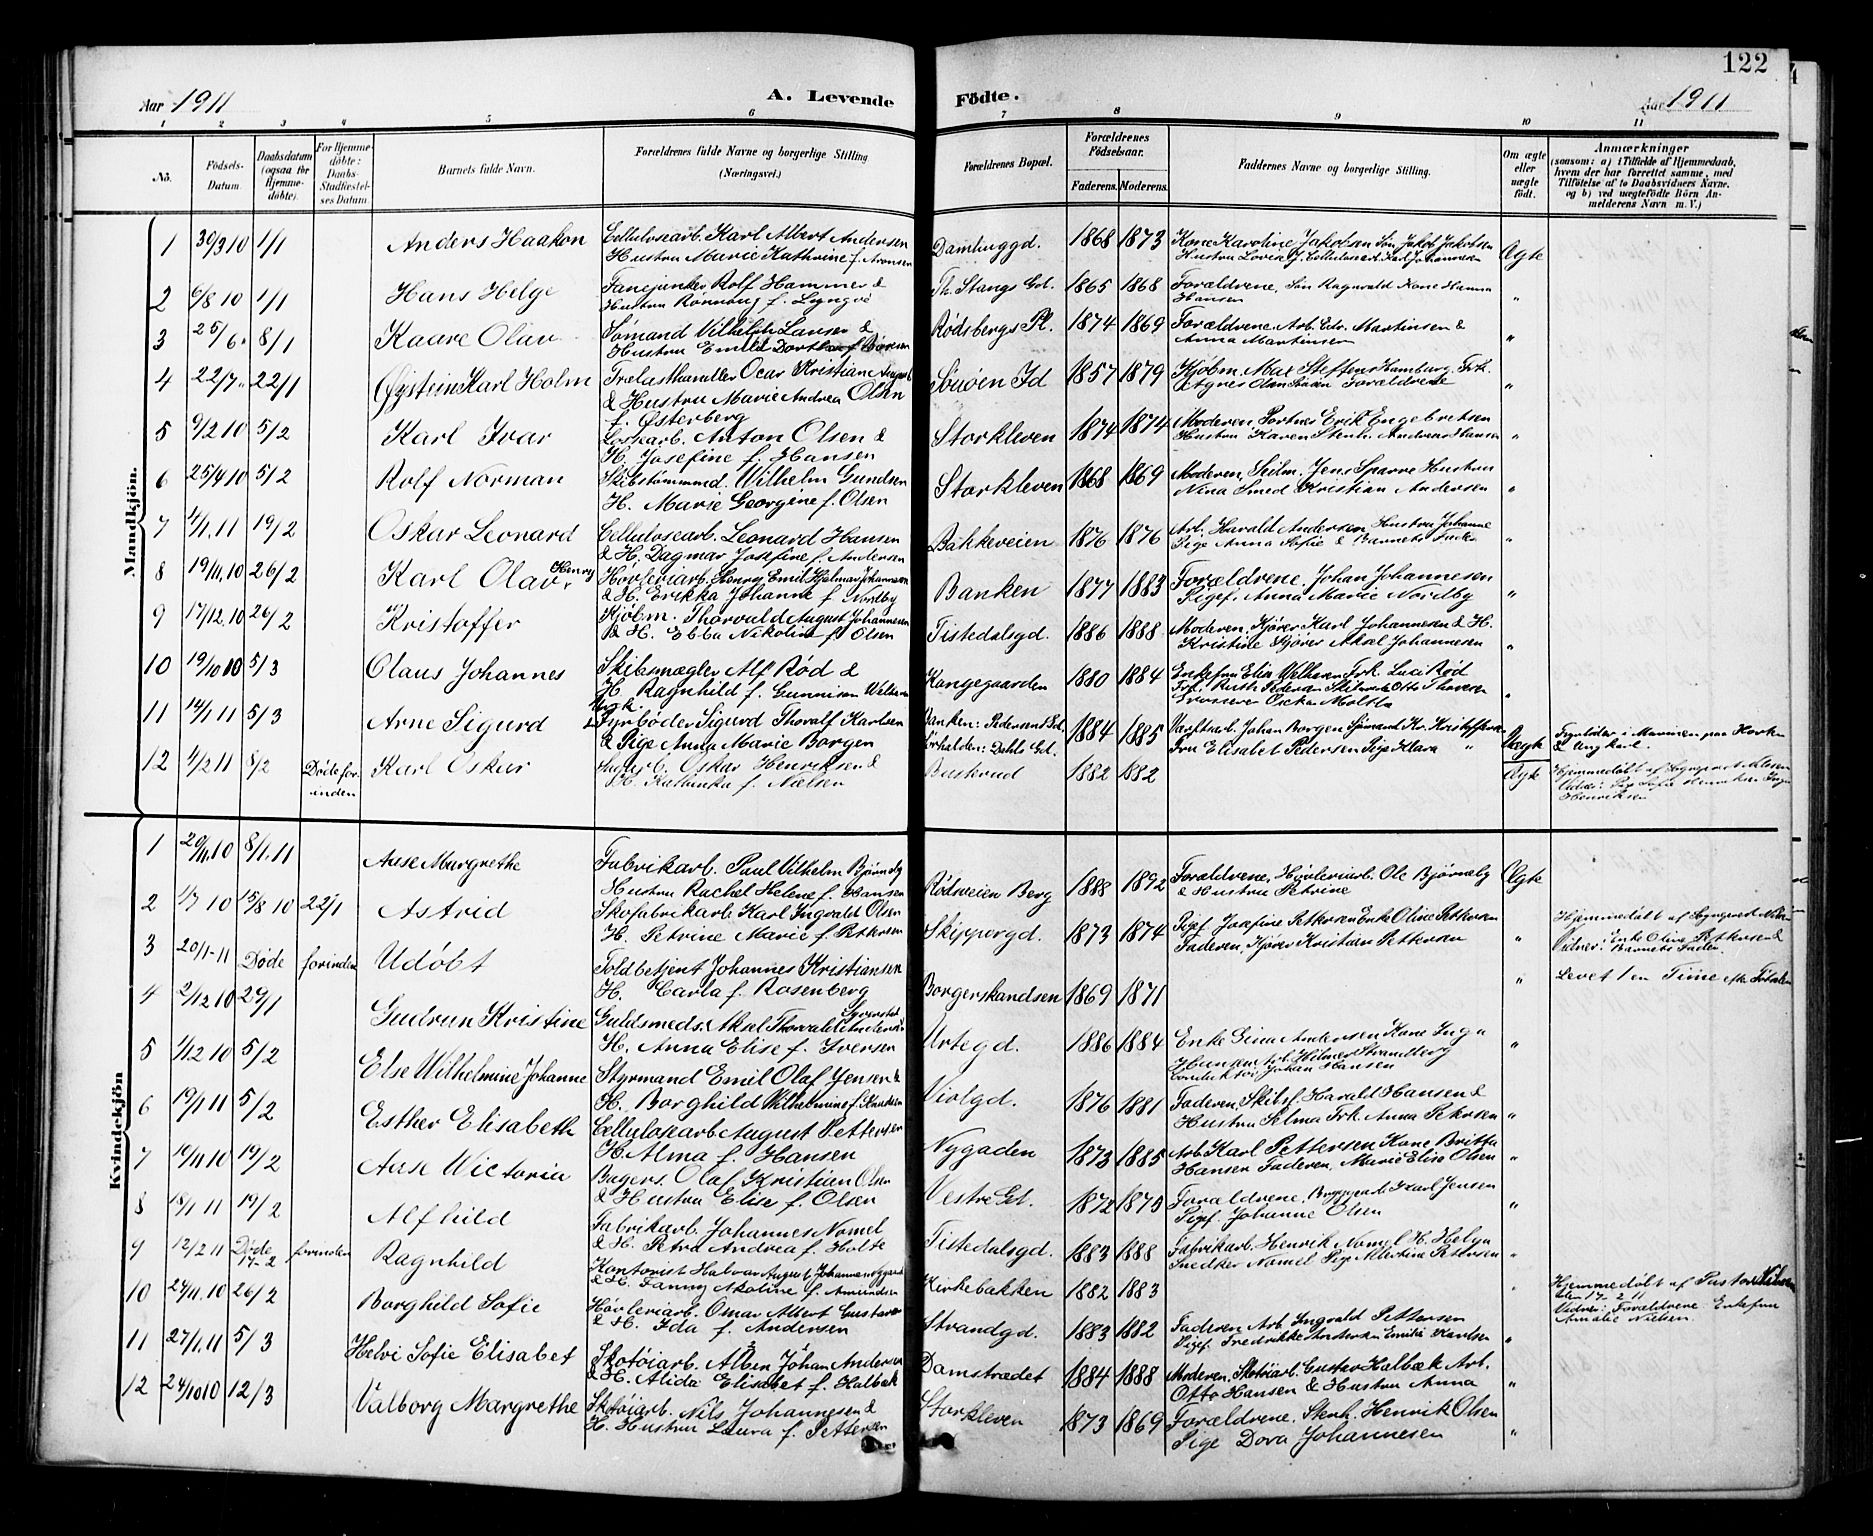 122
Aar 1911 A. Levende Födte. Aar 1911
1 2 3 4 5 6 7 8 9 10 11
No. Födsels-Datum. Daabsdatum (ogsaa for Hjemmedöbte). For Hjemmedöbte: Daabs-Stadfæstelses Datum Barnets fulde Navn. Forældrenes fulde Navne og borgerlige Stilling (Næringsvei.) Forældrenes Bopæl. Forældrenes Födselsaar. Faderens. Moderens. Faddernes Navne og borgerlige Stilling. Om ægte eller uægte födt. Anmærkninger (saasom: a) i Tilfælde af Hjemmedaab, hvem der har forrettet samme, med Tilföielse af to Daabsvidners Navne, og b) ved uægtefödte Börn Anmelderens Navn m. V.)
Mandkjön.
1 30/3 10 1/1 Anders Haakon Cellulosearb. Karl Albert Andersen Damhuggd. 1868 1873 Kone Karoline Jakobsen Søn Jakob Jakobsen Ægte
Hustru Marie Kathrine f. Aronsen Hustru Lovise J. Cellulosearb. Karl Johannesen
2 6/8 10 1/1 Hans Helge Fanejunker Rolf Hammer & Th. Stangs Gd. 1865 1868 Forældrene, Søn Ragnvald Kone Hanna "
Hustru Rønnaug f. Lyngvé Hansen
3 25/6 " 8/1 Kaare Olav Sømand Vilhelm Larsen & Rødsbergs Pl. 1874 1869 Forældrene. Arb. Edv. Martinsen & "
Hustru Emilie Dorthea f. Anna Martinsen
4 22/7 " 22/1 Øystein Karl Holm Trælasthandler Ocar Kristian August 1857 1879 Kjøbm. Max Steffens Hamburg. Frk. "
& Hustru Marie Andrea Olsen Agnes Olsen Forældrene
f. Østerberg
5 9/2 10 5/2 Karl Ivar Lossearb. Anton Olsen & Storkleven 1874 1874 Moderen, Portner Erik Engebretsen "
H. Josefine f. Hansen Hustru Karen Stenh. Andreas Hansen
6 25/4 10 5/2 Rolf Norman Skibstømmmd. Wilhelm Gundsen Storkleven 1868 1869 Moderen, Jens Sparre Hustru "
H. Marie Georgine f. Olsen Nina Smed Kristian Andersen
7 4/1 11 19/2 Oskar Leonard Cellulosearb. Leonard Hansen Bakkeveien 1876 1876 Arb. Harald Andersen, Hustru Johanne "
& H. Dagmar Josefine f. Andersen Pige Anna Sofie & Barnets Fader
8 19/11 10 26/2 Karl Olav Henry Høvleriarb. Henry Emil Hjalmar Johannesen Banken 1877 1883 Forældrene. Johan Johannesen "
& H. Erikka Johanne f. Nordby Pigef. Anna Marie Nordby
9 17/12 10 26/2 Kristoffer Kjøbm. Thorvald August Johannesen Tistedalsgd. 1886 1888 Moderen, Kjører Karl Johannesen & H. "
& H. Ebba Nikoline f. Olsen Kristine Kjører Aksel Johannesen
10 19/10 10 5/3 Olaus Johannes Skibsmægler Alf Rød & Kongegaarden 1880 1884 Enkefru Elise Welhaven Frk. Luci Rød "
H. Ragnhild f. Gunnison Frk. Ruth Pedersen Otto Thoresen
11 14/1 11 5/3 Arne Sigurd Ungk. Fyrbøder Sigurd Thoralf Karlsen Banken: Pedersens Gd. 1884 1885 Værftsarb. Johan Borgen Sømand Kr. Kristoffersen Uægte Fyrbøder i Marinen paa Horten
& Pige Anna Marie Borgen Dahls Gd. Fru Elisabet Pedersen Pige Klara " & Ungkarl.
12 4/2 11 8/2 Døde forinden Karl Oskar Oskar Henriksen & Buskrud 1882 1882 Ægte
H. Kathinka f. Nielsen Henriksen
Kvindekjön
1 20/11 10 8/1 11 Aase Margrethe Fabrikarb. Paul Vilhelm Bjørneby Rødsveien Berg 1888 1892 Forældrene, Høvleriarb. Ole Bjørneby Ægte
Hustru Rachel Helene f. Hansen & Hustru Petrine
2 1/7 10 15/8 10 22/1 Astrid Skofabrikarb. Karl Ingvald Olsen Skippergd. 1873 1874 Pigef. Josefine Pettersen Enke Oline Pettersen "
H. Petrine Marie f. Pettersen Faderen, Kjører Kristian Pettersen Vidner: Enke Oline Pettersen & Barnets Fader
3 20/1-11 Døde forinden Udøbt Toldbetjent Johannes Kristiansen Borgerskandsen 1869 1871 " Levet 1 en Time efter Fødselen
H. Carla f. Rosenberg
4 2/12 10 29/1 Gudrun Kristine Guldsmeds. Aksel Thorvald Urtegd. 1886 1884 Enke Gina Andersen Kone Inga "
H. Anna Elise f. Iversen Hansen, Arb. Hilmer Strandberg
Konduktør Johan Hansen
5 1/12 10 5/2 Else Wilhelmine Johanne Styrmand Emil Olaf Jensen & Violgd. 1876 1881 Faderen, Skibsf. Harald Hansen & "
H. Borghild Wilhelmine f. Knudsen Hustru Selma Frk. Anna Petersen
6 19/1 11 5/2 Esther Elisabeth Cellulosearb August Pettersen Nygaden 1873 1885 Arb. Karl Pettersen Kone Britta "
H. Alma f. Hansen Hansen Faderen, Marie Elise Olsen
7 19/11 10 19/2 Aase Wictoria Bagers. Olaf Kristian Olsen Vestre Gd. 1872 1875 Forældrene, Karl Jensen "
& Hustru Elise f. Olsen Pigef. Johanne Olsen
8 18/1 11 19/2 Alfhild Fabrikarb. Johannes Nomel Tistedalsgd. 1883 1888 Fabrikarb. Henrik Nomel H. Helga "
& H. Petra Andrea f. Holte Snedker Nomel Pige Albertine Pettersen
9 12/2 11 Døde 17-2 forinden Ragnhild Kontorist Halvar August Johannes Nygaard Kirkebakken 1882 1883 " Hjemmedøbt af Pastor Nilsen
& H. Fanny Nicoline f. Amundsen den 17-2 11 Vidner: Forældrene Enkefru Amalie Nielsen.
10 24/11 10 26/2 Borghild Sofie Høvleriarb. Omar Albert Gustavsen Strandgd. 1883 1882 Faderen Arb. Ingvald Pettersen
& H. Ida f. Andersen Pigef. Fredrikke Andersen Emilie Karlsen "
11 27/1 11 5/3 Helvi Sofie Elisabet Skotøiarb. Alben Johan Andersen Damstrædet 1884 1888 Moderen, Skotøiarb. Gustav Halbæk Arb.
& H. Alida Elisabet f. Halbæk Otto Hansen & Hustru Anna "
12 24/10 10 12/3 Valborg Margrethe Skotøiarb. Nils Johannesen & Storkleven 1873 1869 Forældrene. Stenh. Henrik Olsen
H. Hustru Laura f. Pettersen Pige Dora Johannesen "